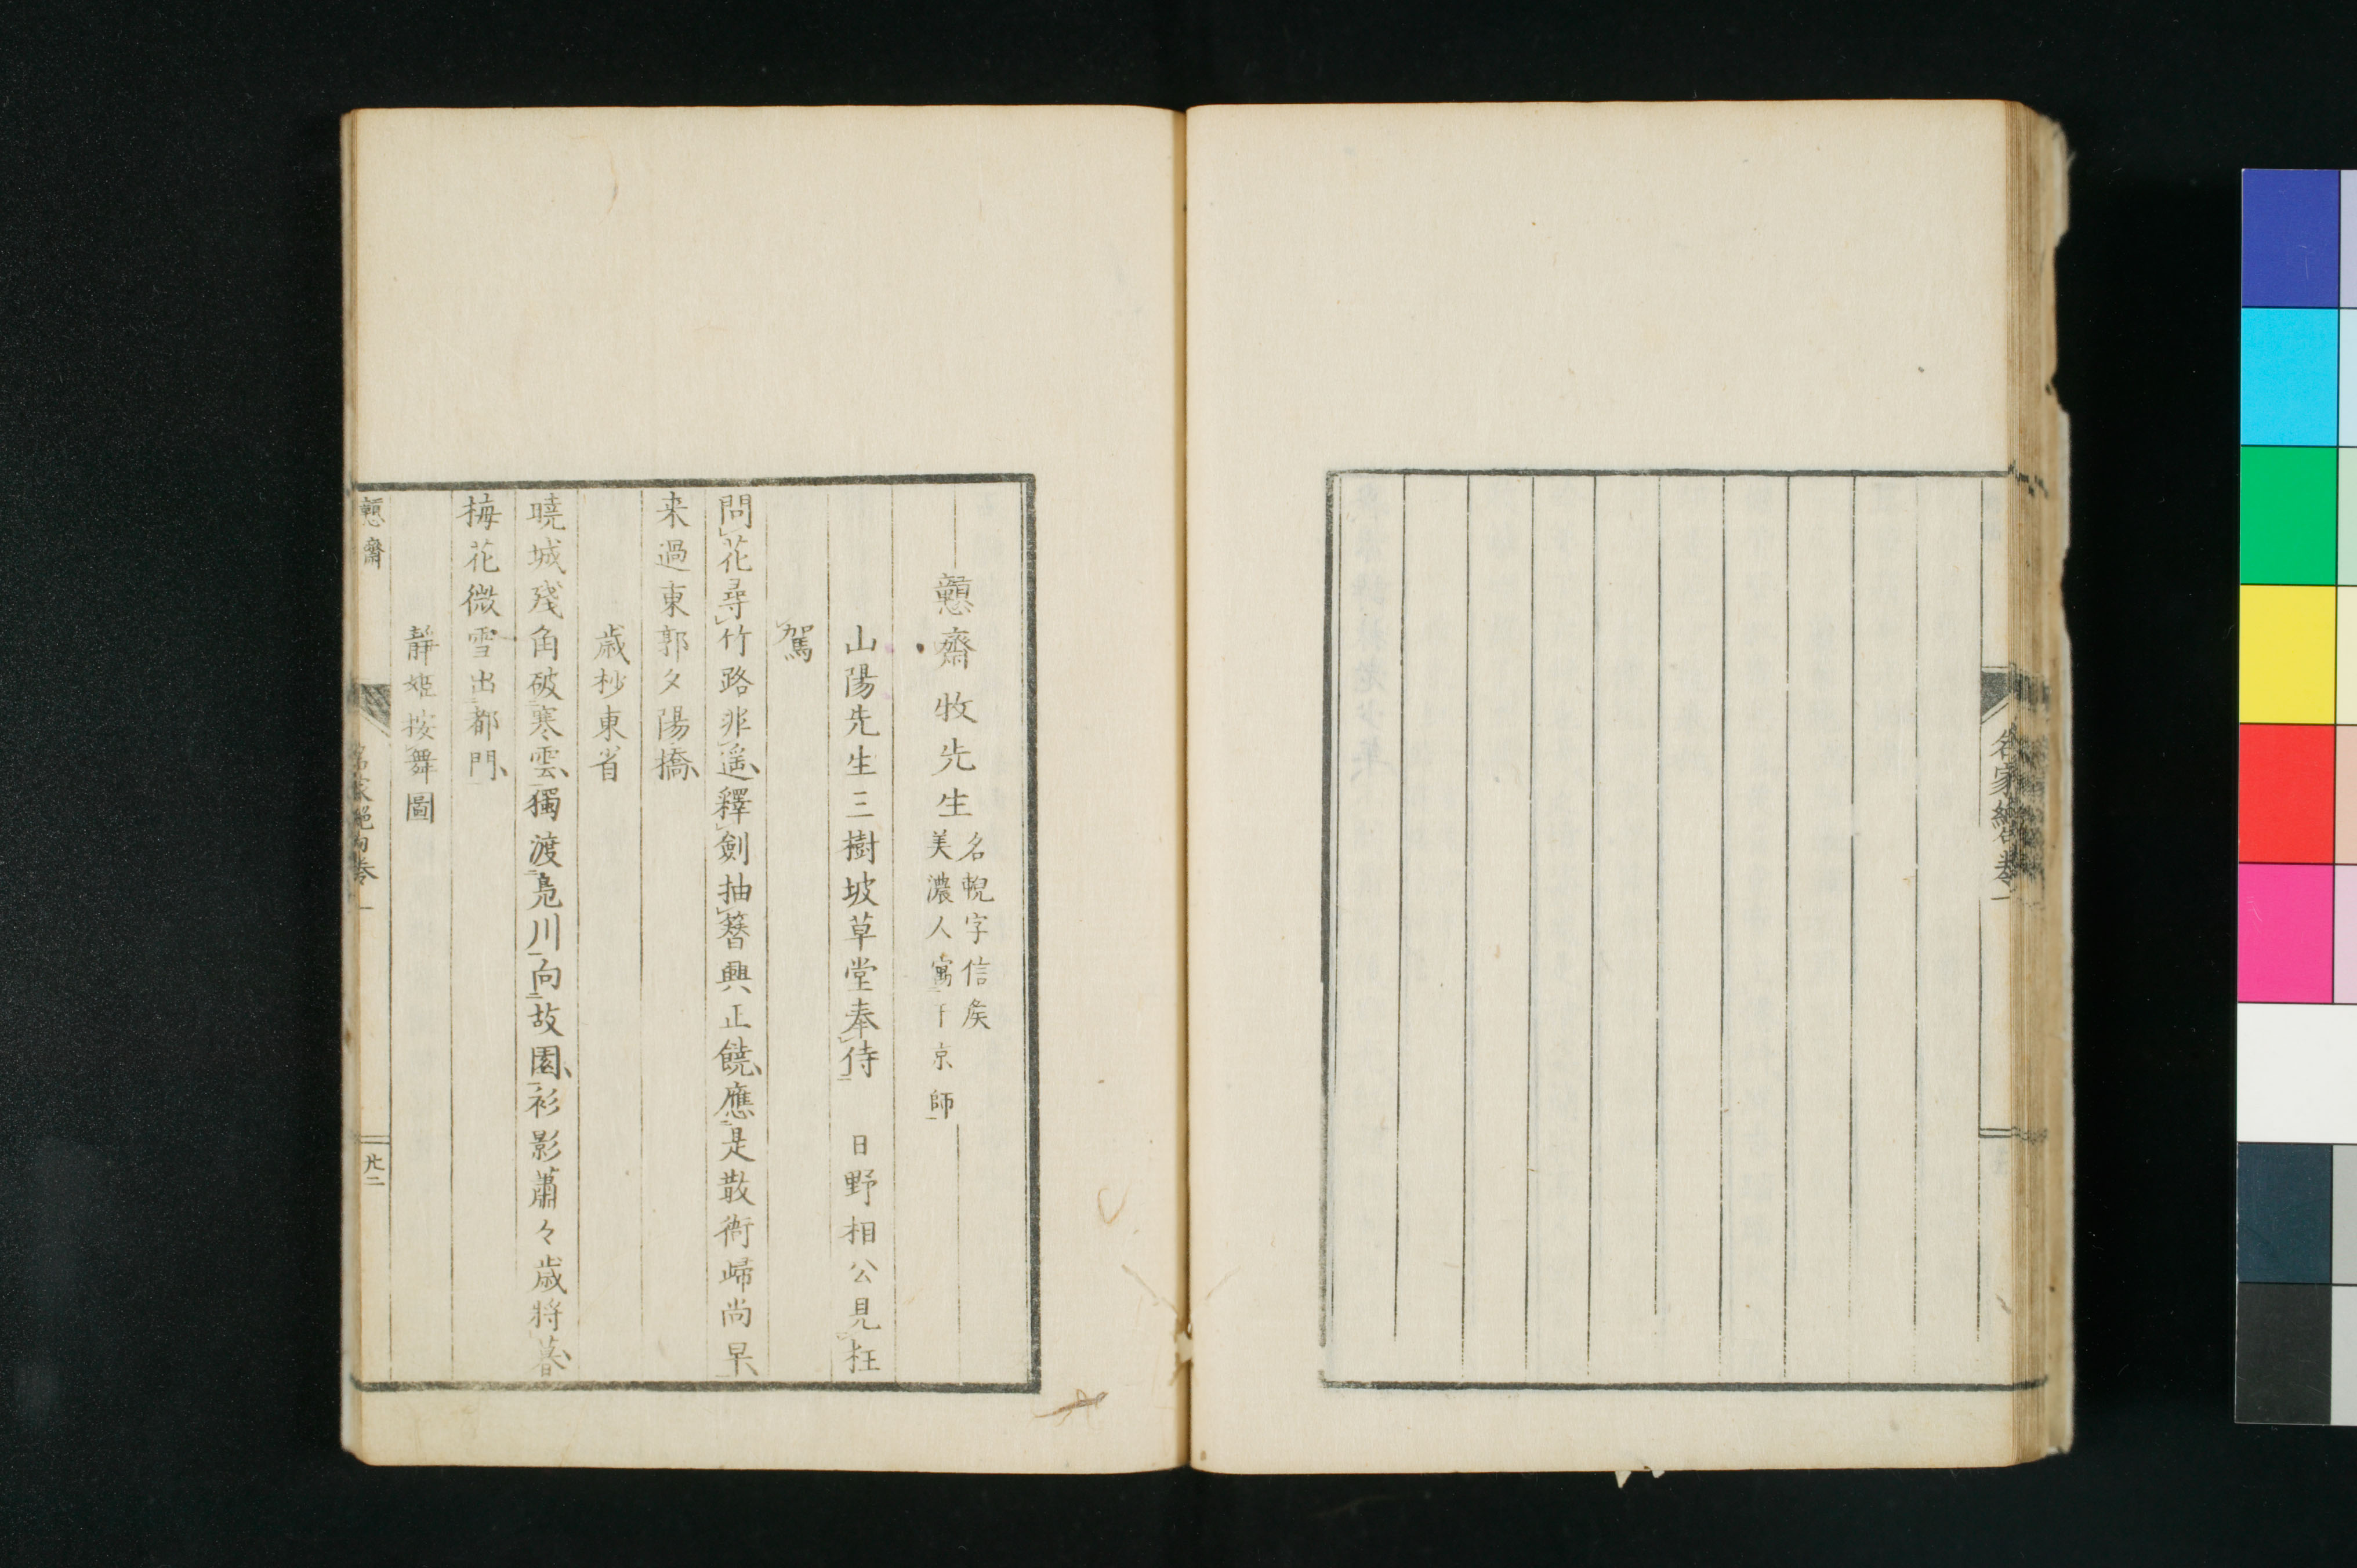 名家絶句卷一
戇齋牧先生
名輗字信矦
美濃人寓于京師
山陽先生三樹坡草堂奉侍　日野相公見枉
駕
問花尋竹路非遥釋劍抽簪興正饒應是散衙歸尚早
来過東郭夕陽橋
歳杪東省
曉城殘角破寒雲獨渡鳬川向故園衫影蕭々歳將暮
梅花微雪出都門
靜姬按舞圖
戇齋
名家絶句卷一
廿二